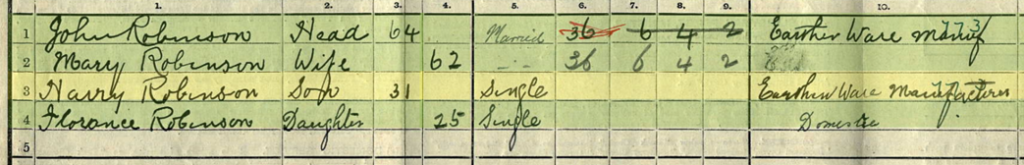 1. 2. 3. 4. 5. 6. 7. 8. 9. 10.
1 John Robinson Head 64 Married 36 6 4 2 Earthen Ware Manuf 773
2 Mary Robinson Wife 62 36 6 4 2
3 Harry Robinson Son 31 Single Earthen Ware Manufacturer
4 Florance Robinson Daughter 25 Single Domestic
5